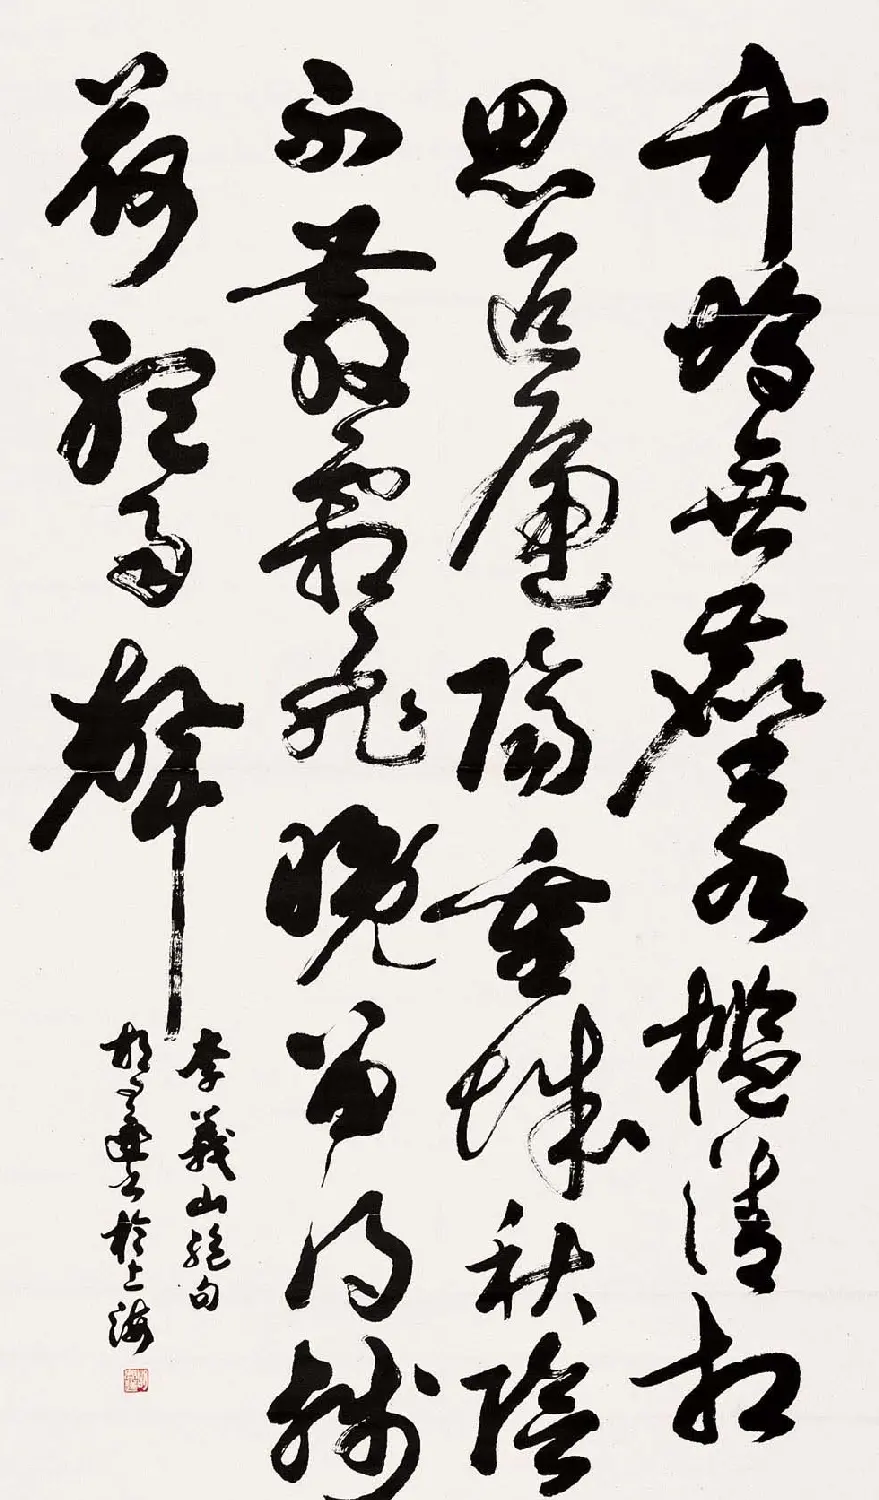 竹塢無塵水檻清相
思迢遞隔重城秋陰
不散霜飛晚留得殘
荷聽雨聲
李義山絕句
胡問遂書於上海